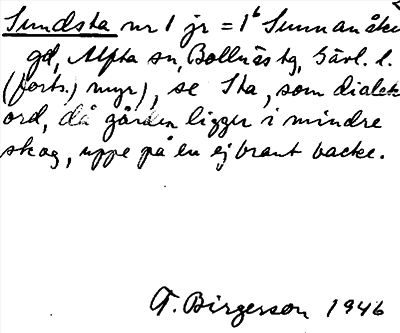 Sundsta nr 1 jr = 1b Sunnanåker
gd, Alfta sn, Bollnäs tg, Gävl. l.
(forts.) myr), se Sta, som dialekt
ord, då gården ligger i mindre
skog, uppe på en ej brant backe.
T. Birgerson 1946